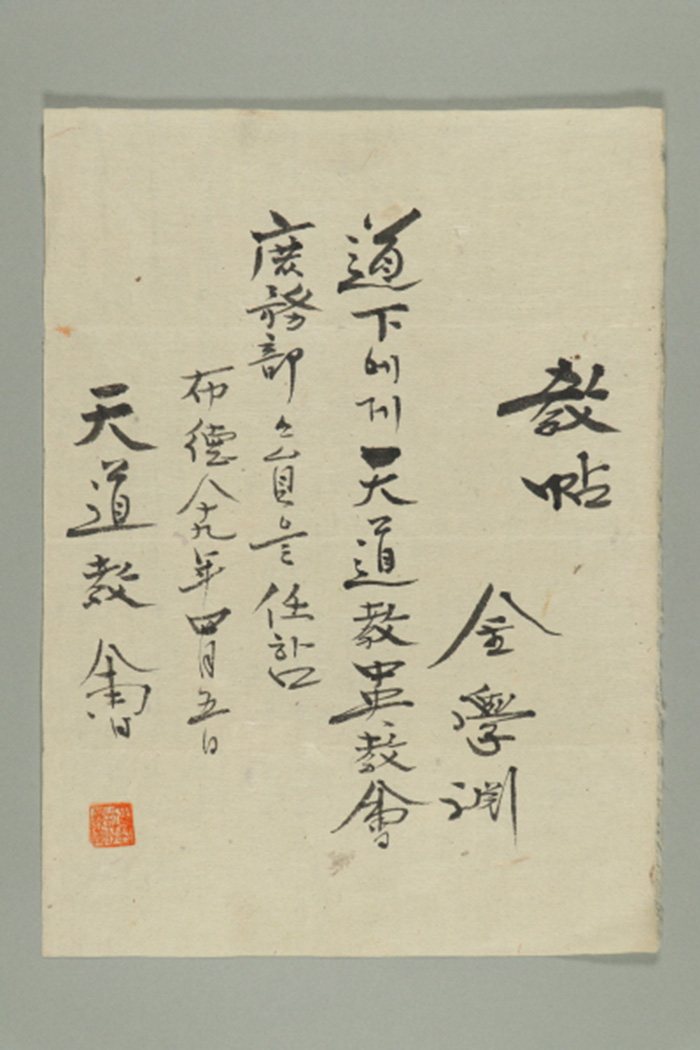 敎帖
金學淵
道下에게天道敎中央敎會
庶務部々員을任함
布德八十九年四月五日
天道敎會